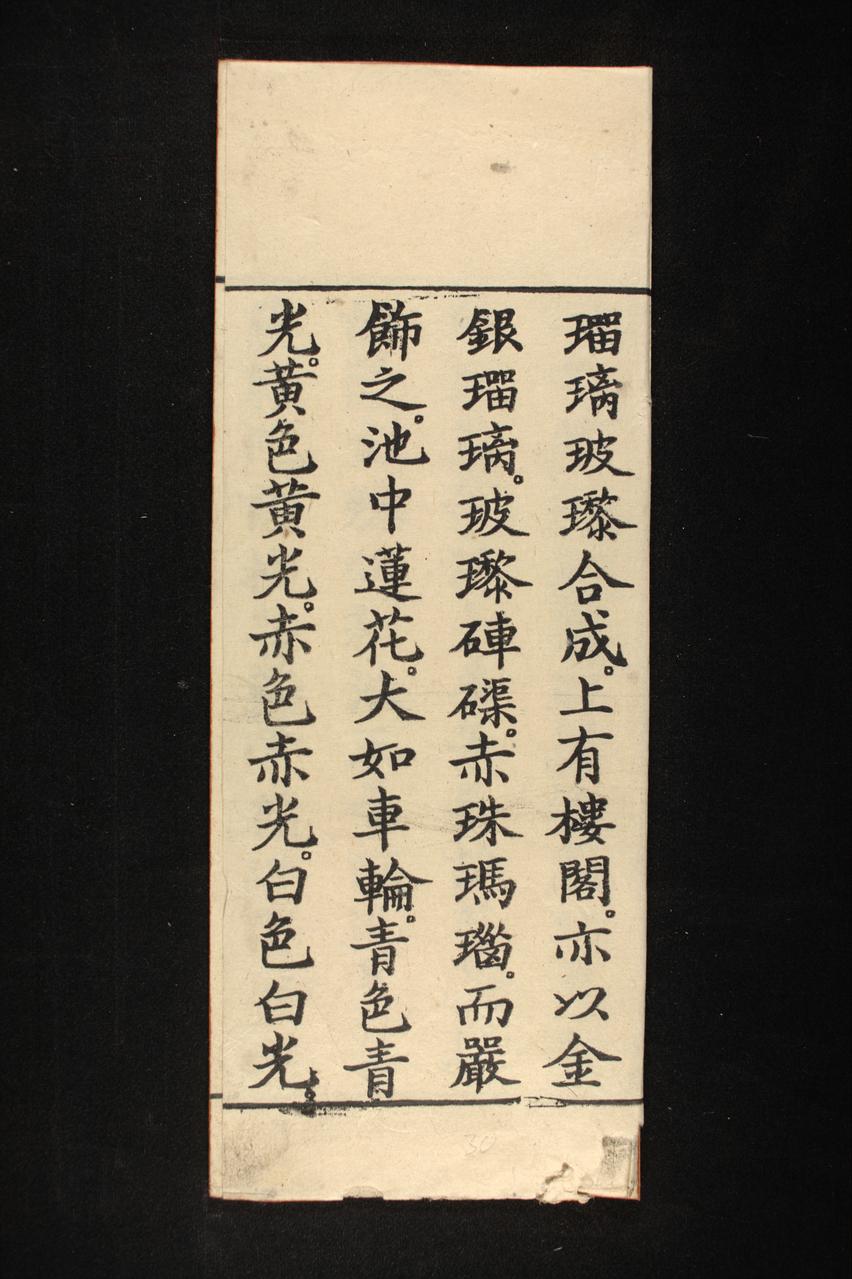 瑠璃玻瓈合成。上有樓閣。亦以金
銀瑠璃。玻瓈硨磲。赤珠瑪瑙。而嚴
飾之。池中蓮花。大如車輪。青色青
光。黃色黃光。赤色赤光。白色白光
30